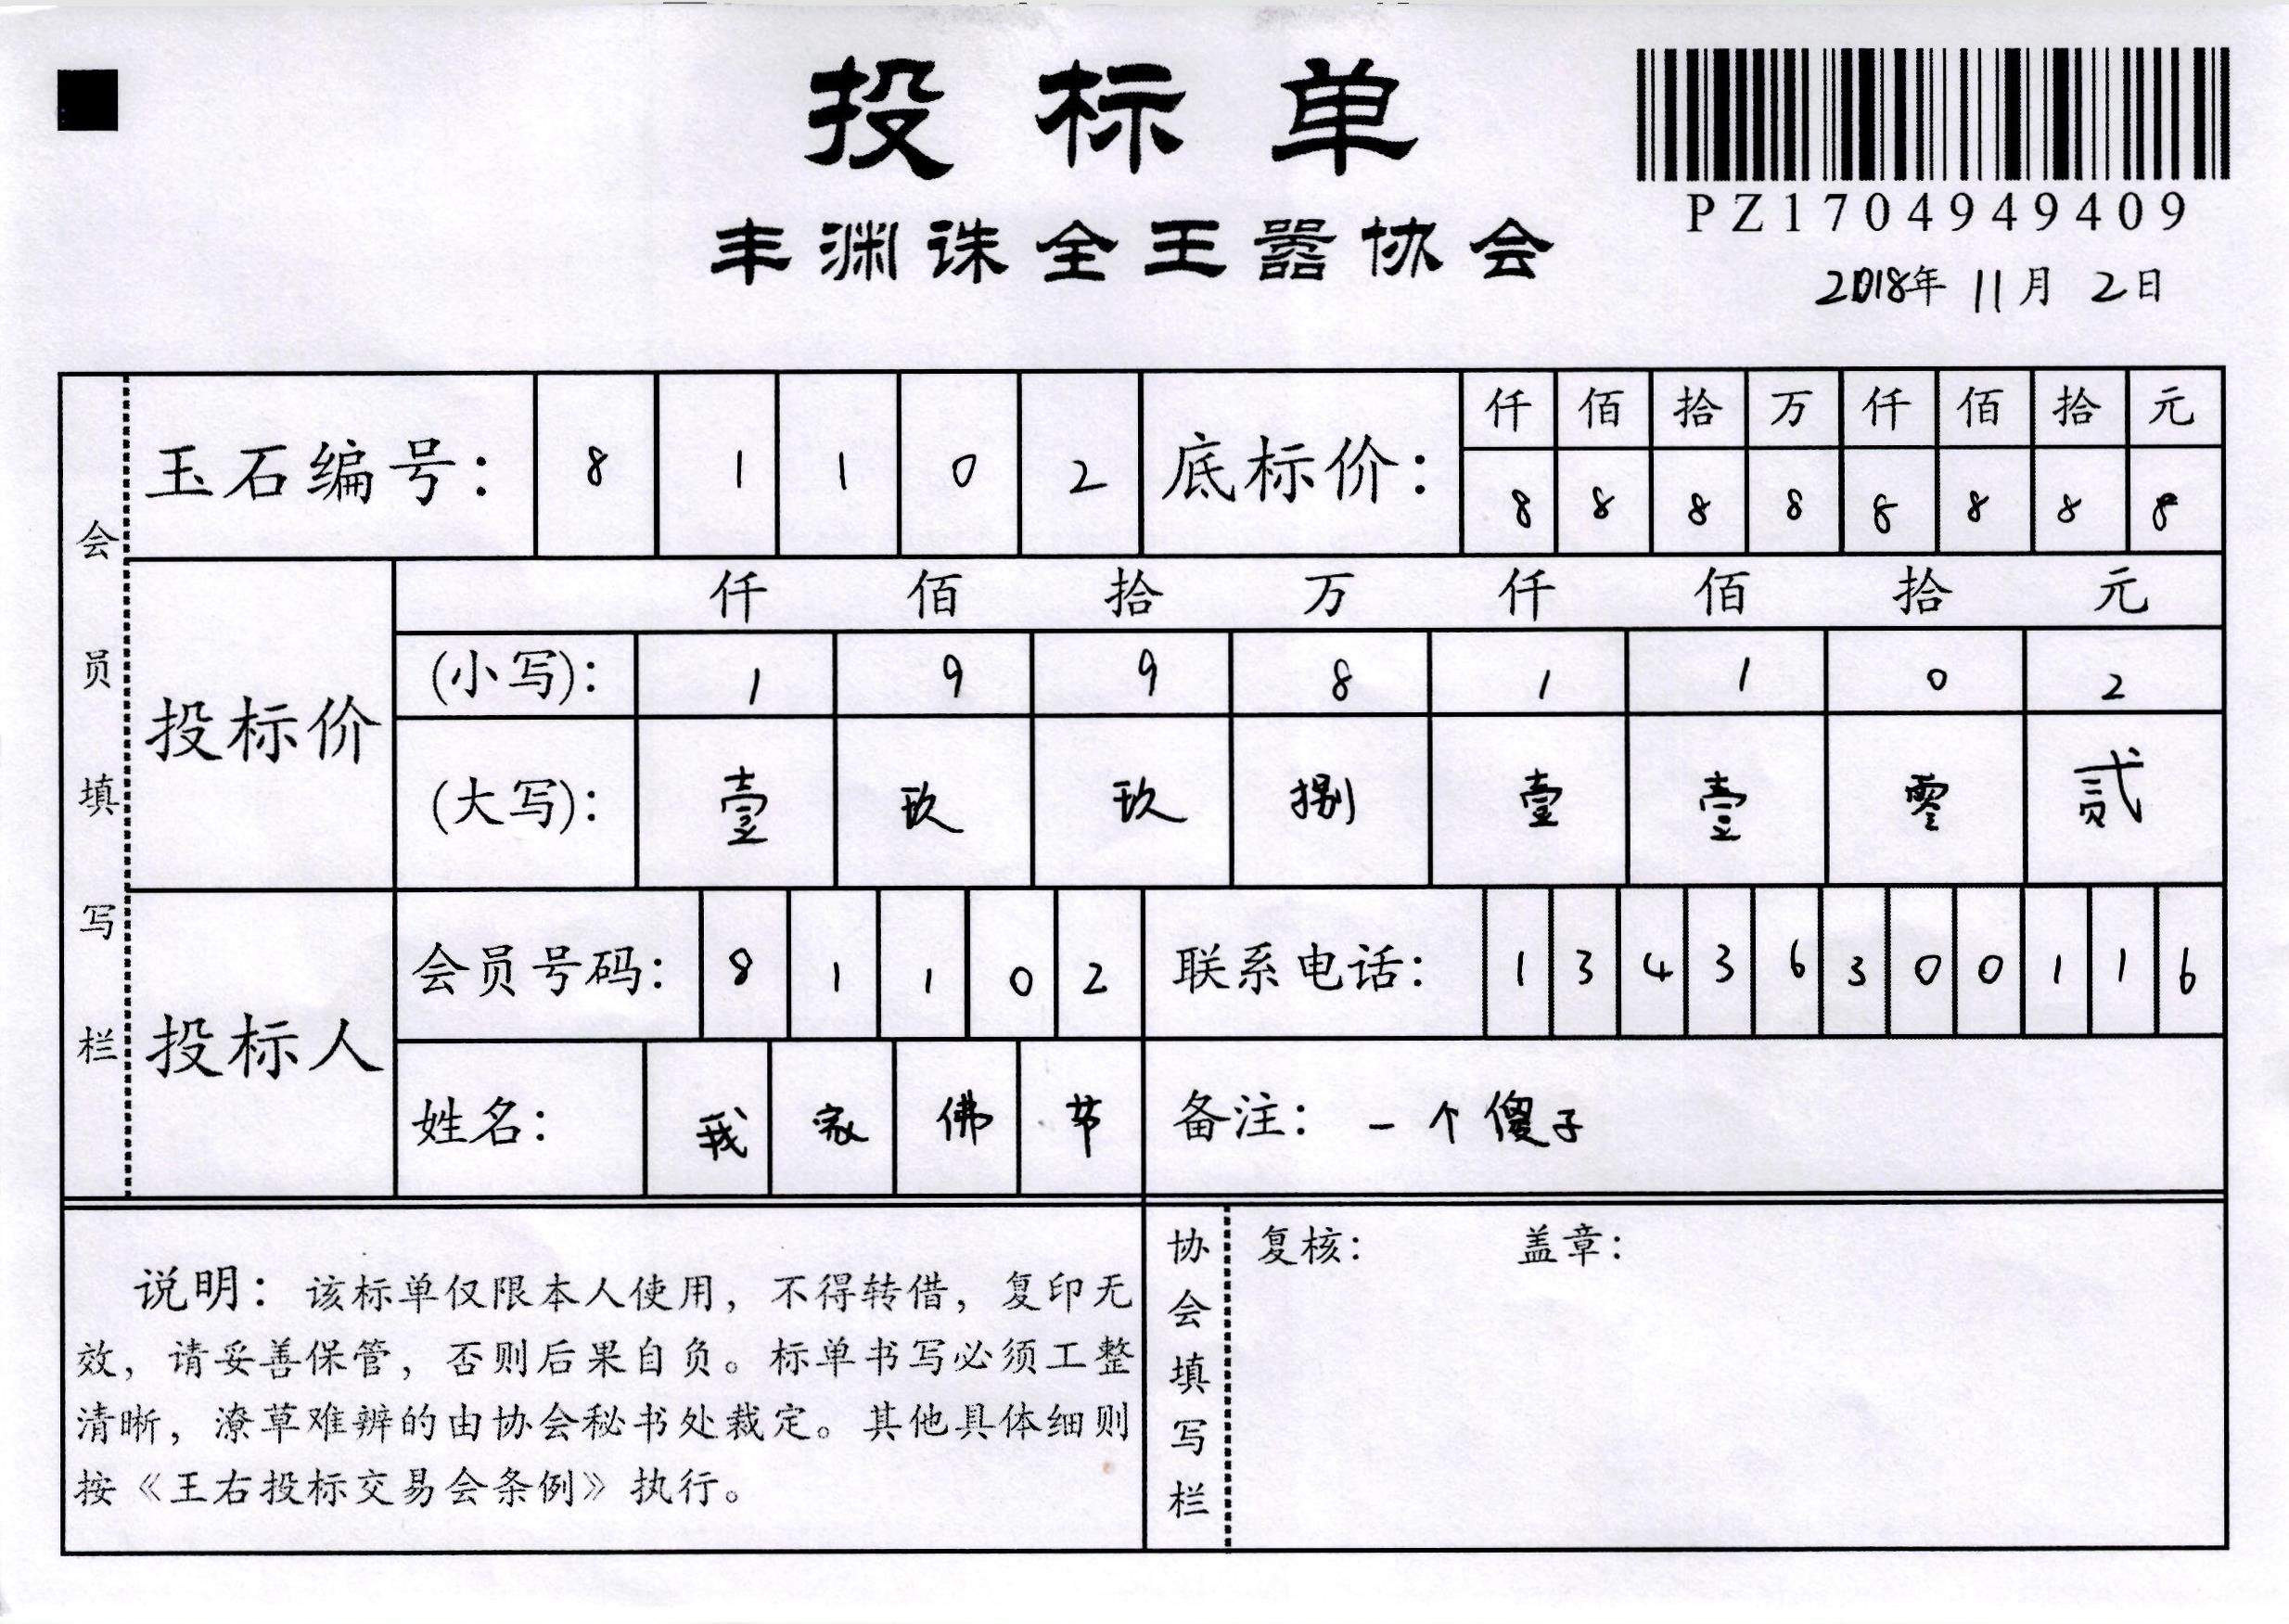 投标单
PZ1704949409
丰渊诛全王嚣协会
2018年 11月 2日
会员填写栏
玉石编号： 8 1 1 0 2 底标价： 仟 佰 拾 万 仟 佰 拾 元
8 8 8 8 8 8 8 8
投标价
仟 佰 拾 万 仟 佰 拾 元
(小写)： 1 9 9 8 1 1 0 2
(大写)： 壹 玖 玖 捌 壹 壹 零 贰
投标人
会员号码： 8 1 1 0 2 联系电话： 1 3 4 3 6 3 0 0 1 1 6
姓名： 我 家 佛 爷 备注： 一个傻子
说明：该标单仅限本人使用，不得转借，复印无
效，请妥善保管，否则后果自负。标单书写必须工整
清晰，潦草难辨的由协会秘书处裁定。其他具体细则
按《王右投标交易会条例》执行。
协会填写栏
复核： 盖章：